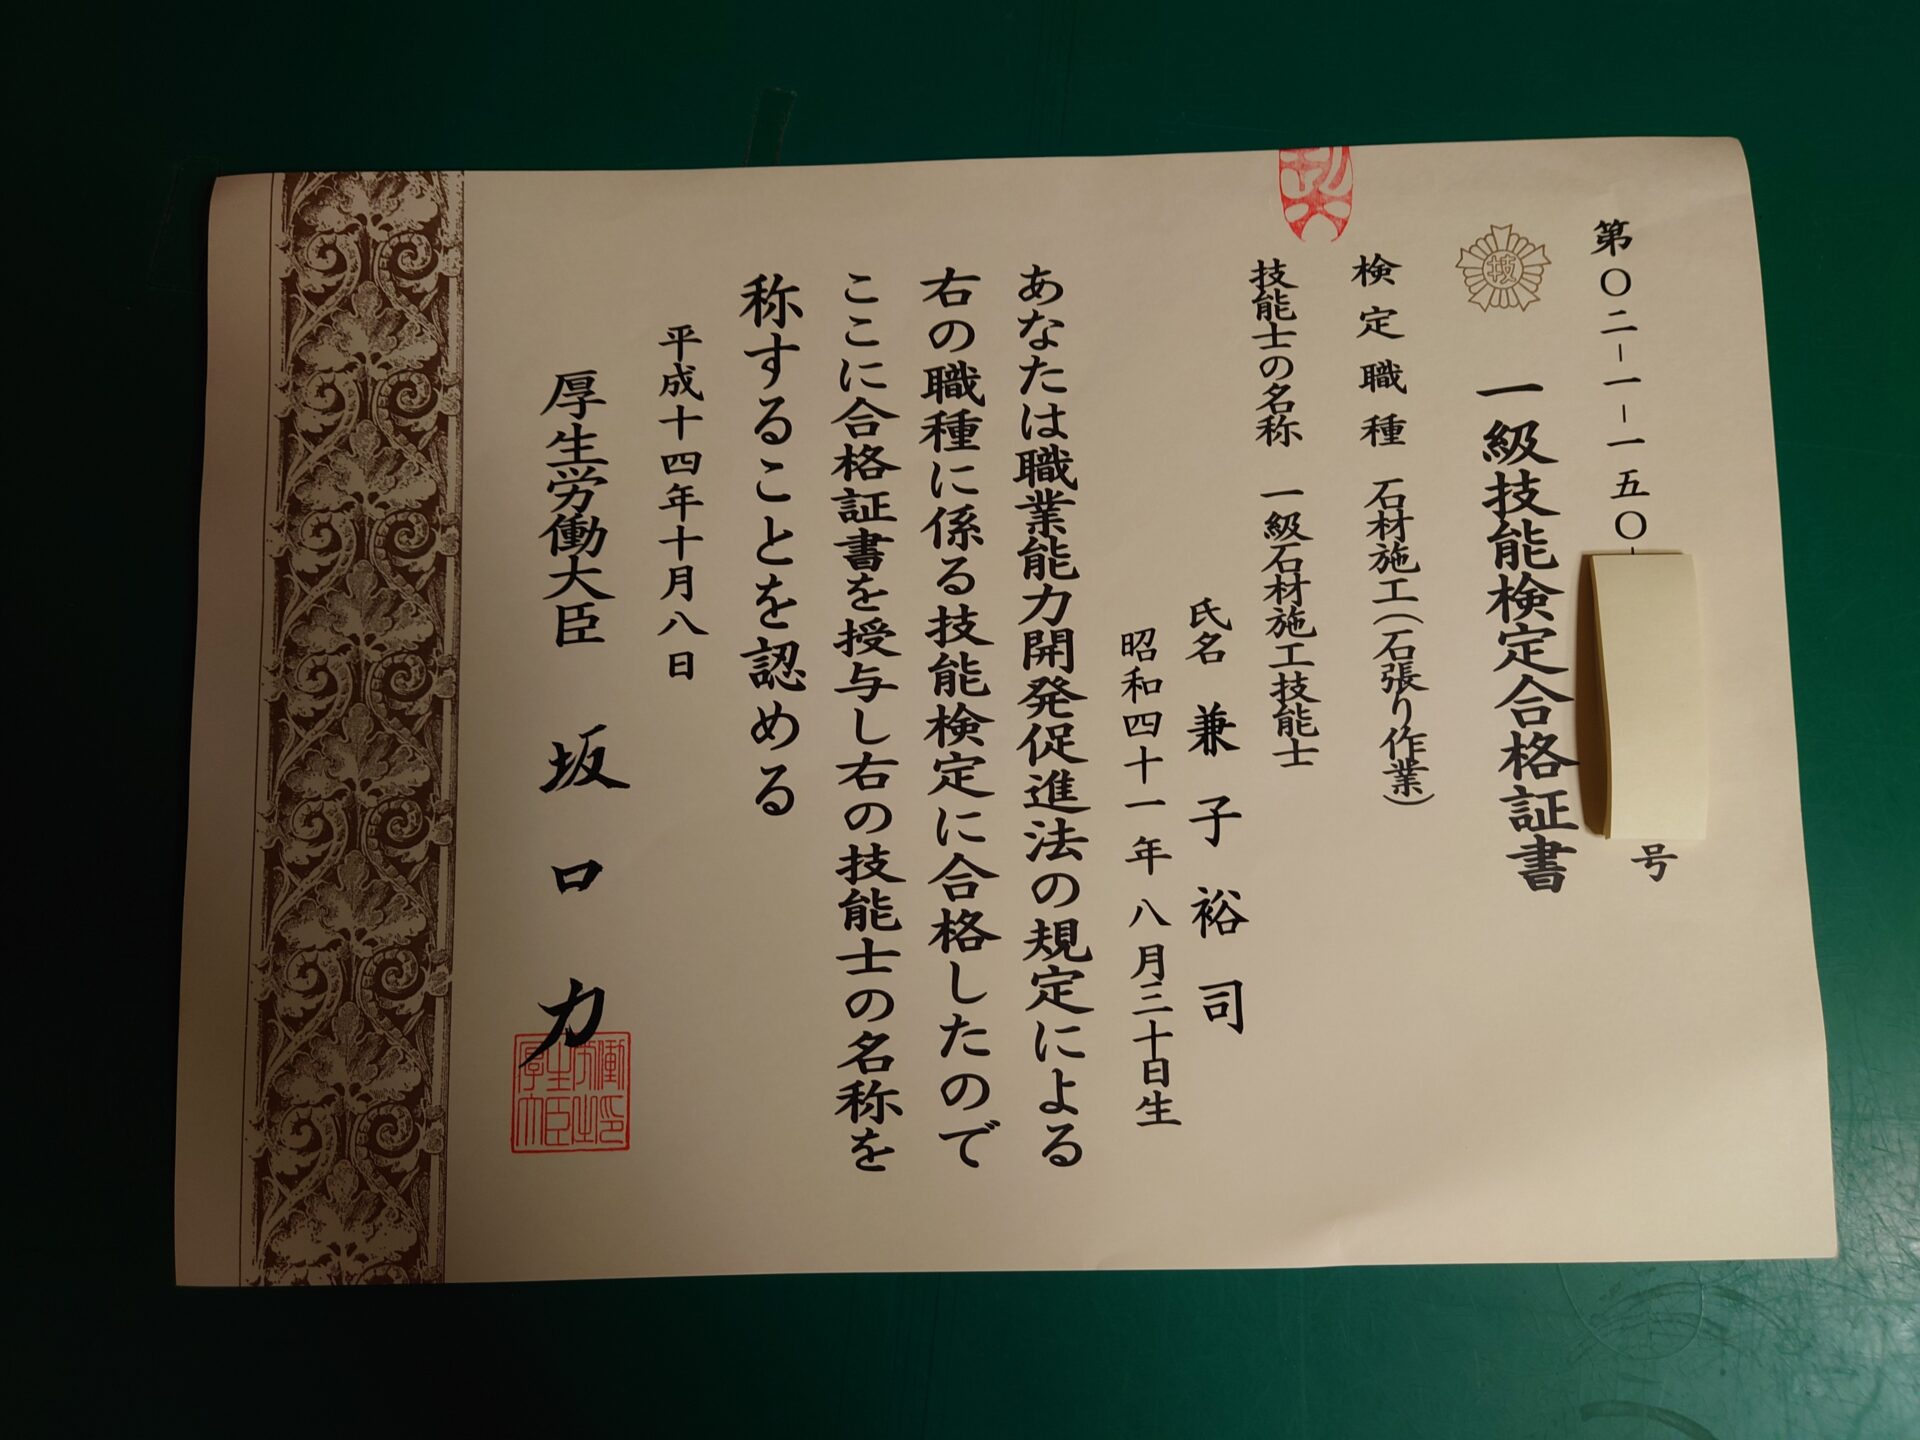 第〇二－一－一五〇－
号
技
一級技能検定合格証書
検定職種 石材施工(石張り作業)
技能士の名称 一級石材施工技能士
氏名 兼子裕司
昭和四十一年八月三十日生
あなたは職業能力開発促進法の規定による
右の職種に係る技能検定に合格したので
ここに合格証書を授与し右の技能士の名称を
称することを認める
平成十四年十月八日
厚生労働大臣 坂口力
厚生労働大臣之印